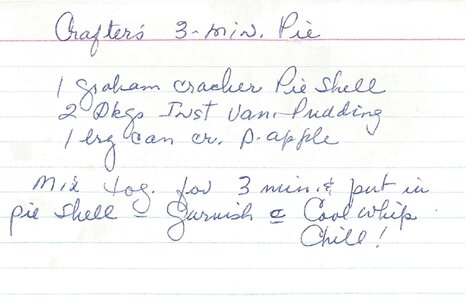 Crafter's 3-min. Pie
1 graham cracker Pie Shell
2 pkgs Inst Van. Pudding
1 lrg can cr. P-apple
Mix tog. for 3 min. & put in
pie shell - Garnish c Cool whip.
Chill!